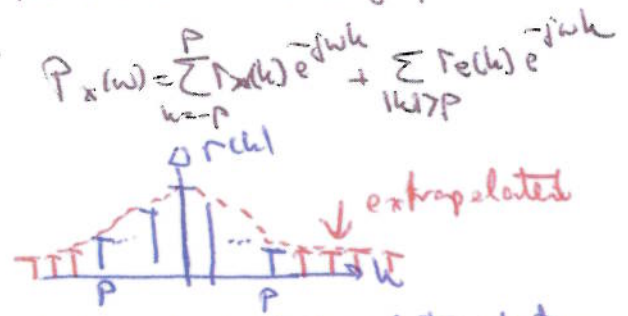 P_x(ω) = Σ_{k=-p}^{p} r_x(k) e^{-jωk} + Σ_{|k|>p} r_e(k) e^{-jωk}
r(k)
extrapolated
k
p
p